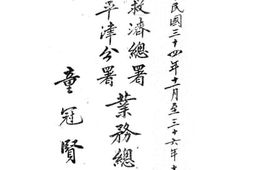 民國三十四年十一月至三十六年十
救濟總署
平津分署
業務總
童冠賢